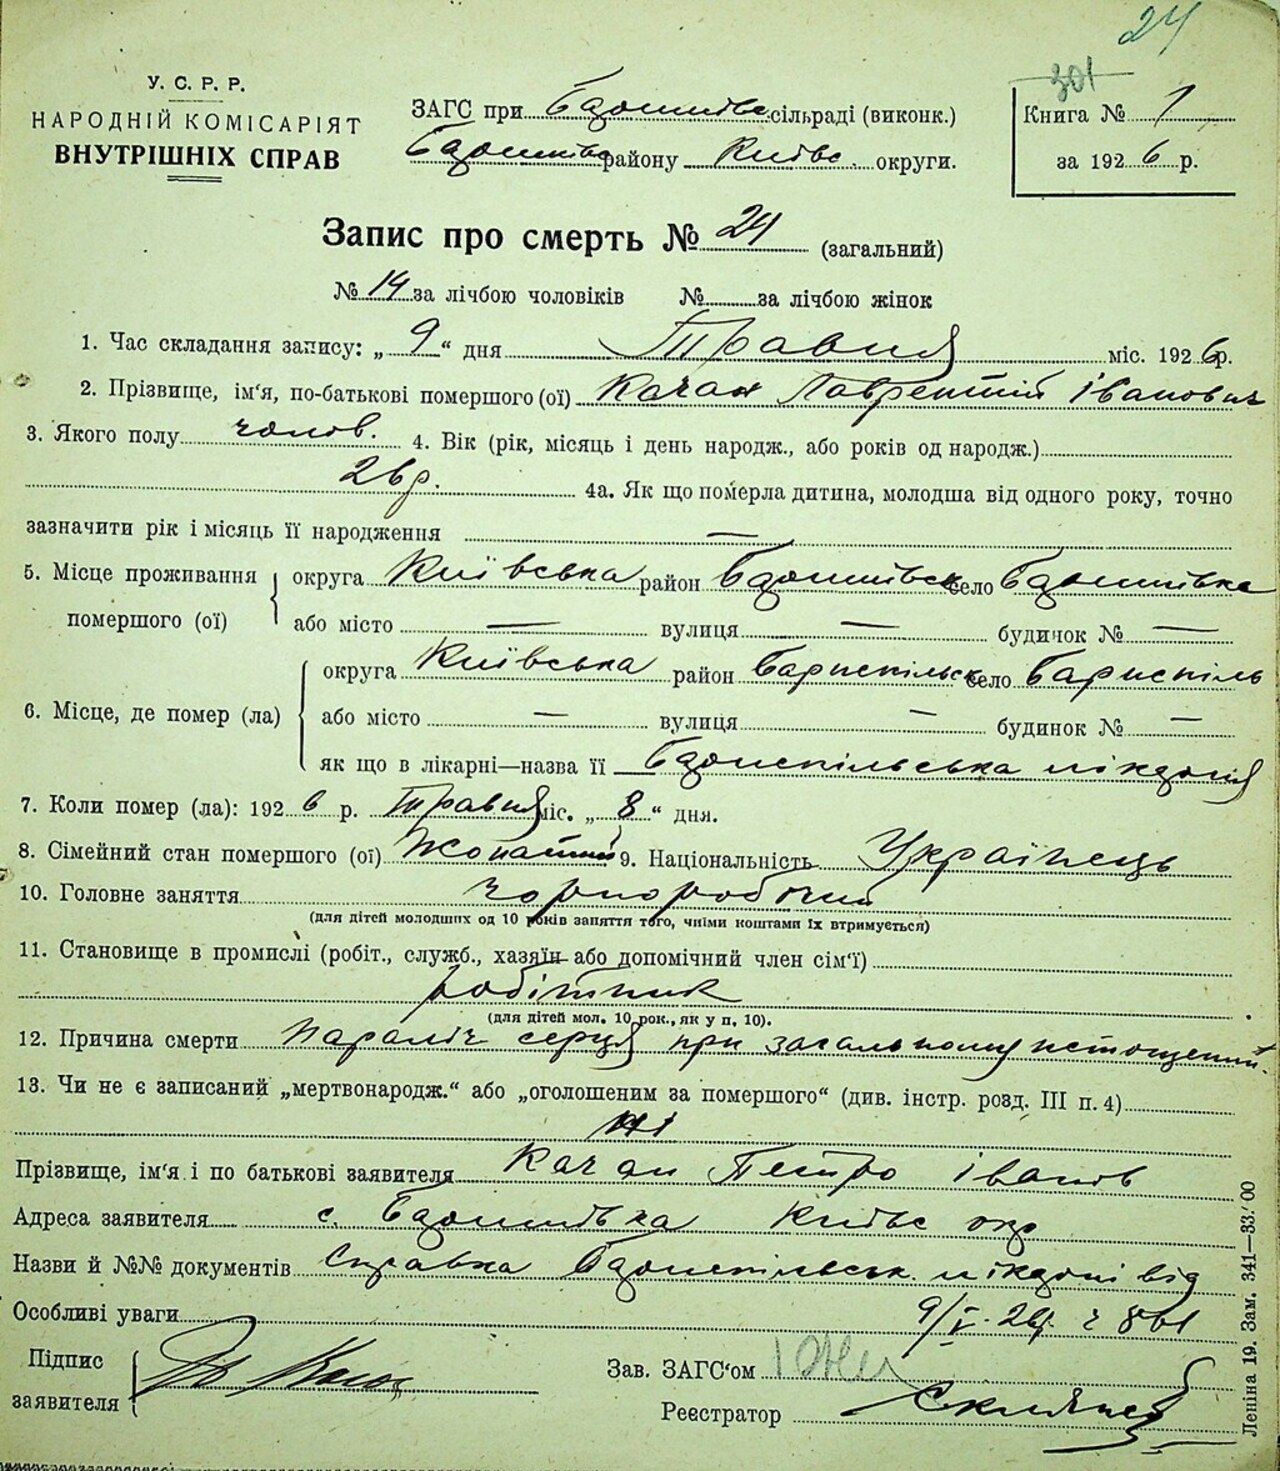 24
301
У. С. Р. Р.
НАРОДНІЙ КОМІСАРІЯТ
ВНУТРІШНІХ СПРАВ
ЗАГС при сільраді (виконк.)
району Київс. округи.
Книга № 1
за 1926 р.
Запис про смерть № 24 (загальний)
№ 14 за лічбою чоловіків № за лічбою жінок
1. Час складання запису: „ 9 “ дня Травня міс. 1926 р.
2. Прізвище, ім‘я, по-батькові помершого (ої) Качан Лаврентій Іванович
3. Якого полу чолов. 4. Вік (рік, місяць і день народж., або років од народж.)
26 р. 4а. Як що померла дитина, молодша від одного року, точно
зазначити рік і місяць її народження —
5. Місце проживання помершого (ої) округа Київська район село
або місто — вулиця — будинок № —
6. Місце, де помер (ла) округа Київська район Бариспільськ село Бариспіль
або місто — вулиця — будинок № —
як що в лікарні—назва її лікарня
7. Коли помер (ла): 1926 р. Травня міс. „ 8 “ дня.
8. Сімейний стан помершого (ої) Жонатий 9. Національність Українець
10. Головне заняття чорноробочий
(для дітей молодших од 10 років заняття того, чиїми коштами їх втримується)
11. Становище в промислі (робіт., служб., хазяїн або допомічний член сім‘ї)
робітник
(для дітей мол. 10 рок., як у п. 10).
12. Причина смерти Параліч серця при загальному истощении
13. Чи не є записаний „мертвонародж.“ або „оголошеним за помершого“ (див. інстр. розд. III п. 4)
ні
Прізвище, ім‘я і по батькові заявителя Качан Петро Іванов
Адреса заявителя с. Київс окр
Назви й №№ документів Справка лікарні від
Особливі уваги 9/V 26р.
Підпис заявителя
Зав. ЗАГС‘ом
Реєстратор
Леніна 19. Зам. 341—33.‘00